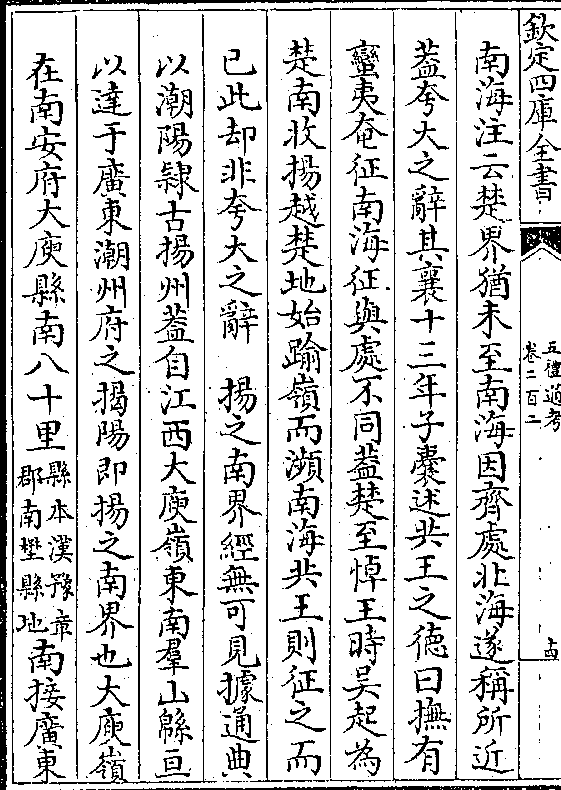 欽定四庫全書
五禮通考
卷二百二
南海注云楚界猶未至南海因齊處北海遂稱所近
葢夸大之辭其襄十三年子囊述共王之德曰撫有
蠻夷奄征南海征與處不同葢楚至悼王時吳起為
楚南收揚越楚地始踰嶺而瀕南海共王則征之而
已此却非夸大之辭　揚之南界經無可見據通典
以潮陽隸古揚州葢自江西大庾嶺東南羣山緜亘
以達于廣東潮州府之揭陽即揚之南界也大庾嶺
在南安府大庾縣南八十里縣本漢豫章郡南壄縣地南接廣東